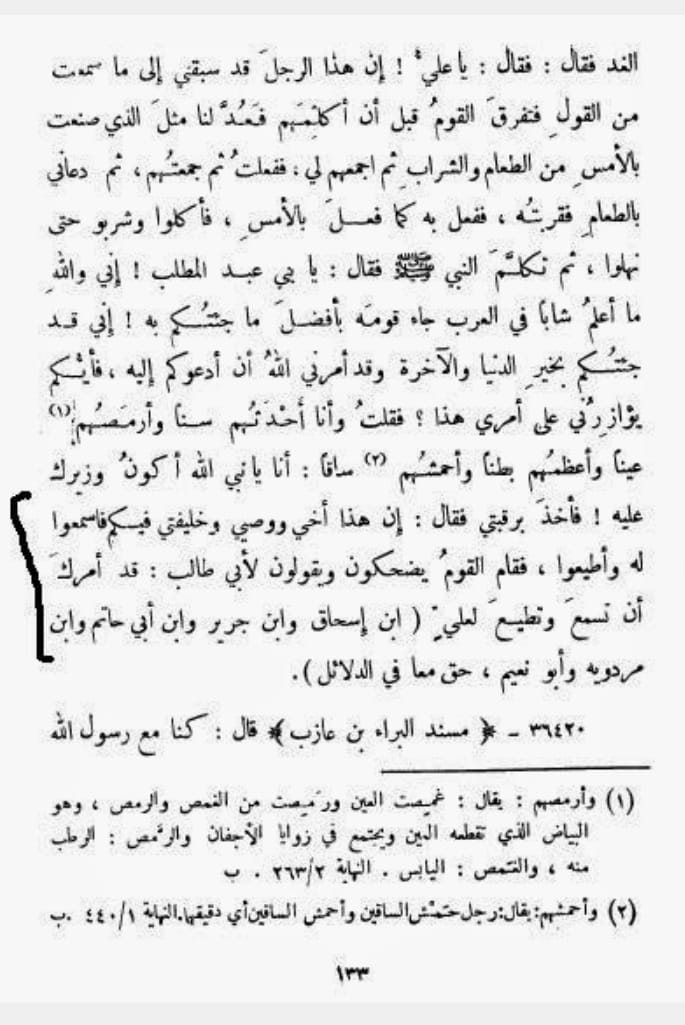 الغد فقال : فقال : يا علي ! إن هذا الرجلَ قد سبقني إلى ما سمعت
من القولِ فتفرقَ القومُ قبل أن أكلمَهم فَعُدَّ لنا مثلَ الذي صنعت
بالأمسِ من الطعام والشراب ثم اجمعهم لي ، ففعلتُ ثم جمعتُهم ، ثم دعاني
بالطعامِ فقربتُه ، ففعل به كما فعـلَ بالأمسِ ، فأكلوا وشربو حتى
نهلوا ، ثم تكلَّمَ النبي ﷺ فقال : يا بي عبـد المطلب ! إني واللهِ
ما أعلمُ شاباً في العرب جاء قومَه بأفضـلَ ما جئتُـكم به ! إني قـد
جئتُـكم بخيرِ الدنيا والآخرة وقد أمرني اللهُ أن أدعوكم إليه ، فأيُّـكم
يؤازرُني على أمري هذا ؟ فقلتُ وأنا أَحْدَثُهم سـناً وأرمَصُهم (١)
عيناً وأعظمُهم بطناً وأحمشُهم (٢) ساقاً : أنا يا نبي الله أكونُ وزيرك
عليه ! فأخذَ برقبتي فقال : إن هذا أخي ووصيي وخليفتي فيـكم فاسمعوا
له وأطيعوا ، فقام القومُ يضحكون ويقولون لأبي طالب : قد أمركَ
أن تسمعَ وتطيـعَ لعليٍّ ( ابن إسحاق وابن جرير وابن أبي حاتم وابن
مردويه وأبو نعيم ، حق معا في الدلائل ) .
٣٦٤٢٠ ـ ﴿ مسند البراء بن عازب ﴾ قال : كنا مع رسول الله
(١) وأرمصهم : يقال : غمِصت العين ورَمِصت من الغمص والرمص ، وهو
البياض الذي تقطعه العين ويجتمع في زوايا الأجفان والرَّمص : الرطب
منه ، والغمص : اليابس . النهاية ٢٦٣/٢ . ب
(٢) وأحمشهم: يقال: رجل حَمْش الساقين وأحمش الساقين أي دقيقها. النهاية ٤٤٠/١ .ب
١٣٣